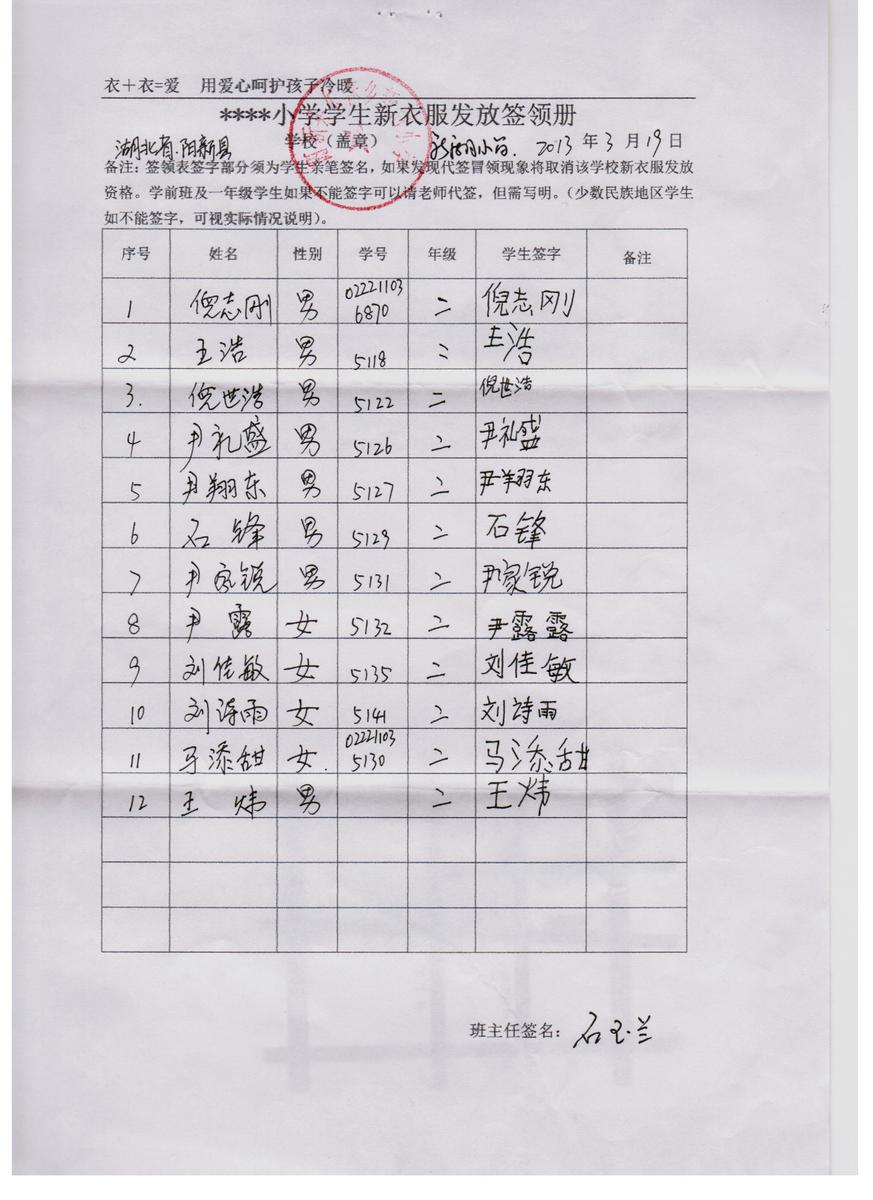 衣+衣=爱 用爱心呵护孩子冷暖
****小学学生新衣服发放签领册
湖北省.阳新县 学校（盖章） 小学. 2013 年 3 月 19 日
备注：签领表签字部分须为学生亲笔签名，如果发现代签冒领现象将取消该学校新衣服发放
资格。学前班及一年级学生如果不能签字可以请老师代签，但需写明。（少数民族地区学生
如不能签字，可视实际情况说明）。
序号 姓名 性别 学号 年级 学生签字 备注
1 倪志刚 男 022211036870 二 倪志刚
2 王浩 男 5118 二 王浩
3. 倪世浩 男 5122 二 倪世浩
4 尹礼盛 男 5126 二 尹礼盛
5 尹翔东 男 5127 二 尹翔东
6 石锋 男 5129 二 石锋
7 尹家锐 男 5131 二 尹家锐
8 尹露 女 5132 二 尹露露
9 刘佳敏 女 5135 二 刘佳敏
10 刘诗雨 女 5141 二 刘诗雨
11 马添甜 女. 022211035130 二 马添甜
12 王炜 男 二 王炜
班主任签名：石玉兰